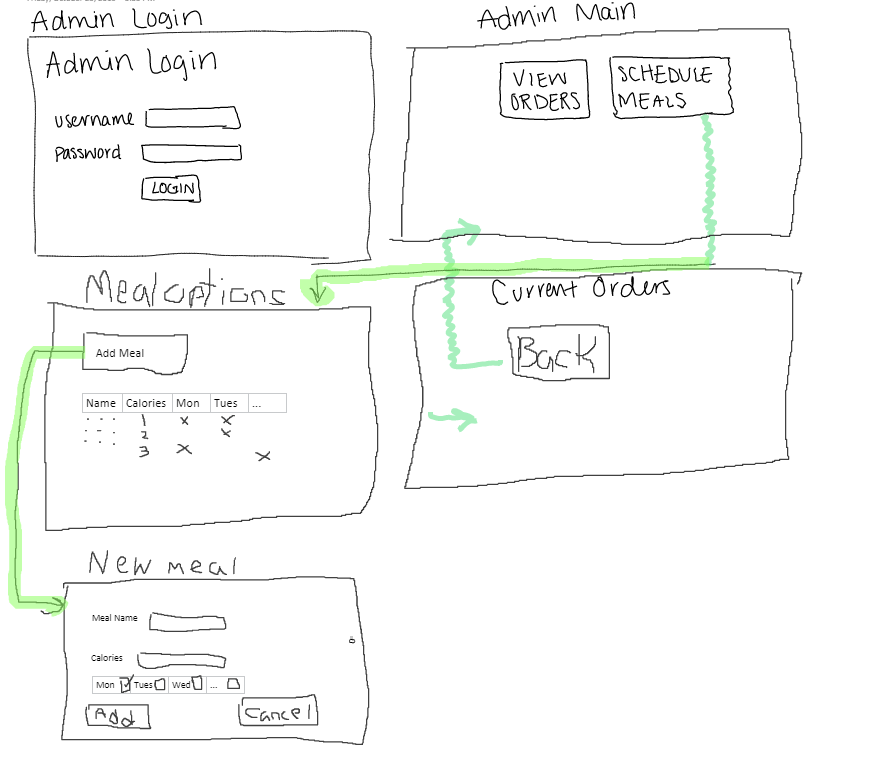 Admin Login
Admin Login
username
password
LOGIN
Admin Main
VIEW
ORDERS
SCHEDULE
MEALS
Meal options
Add Meal
Name Calories Mon Tues ...
1 x x
2 x
3 x x
Current Orders
Back
New meal
Meal Name
Calories
Mon Tues Wed ...
Add Cancel